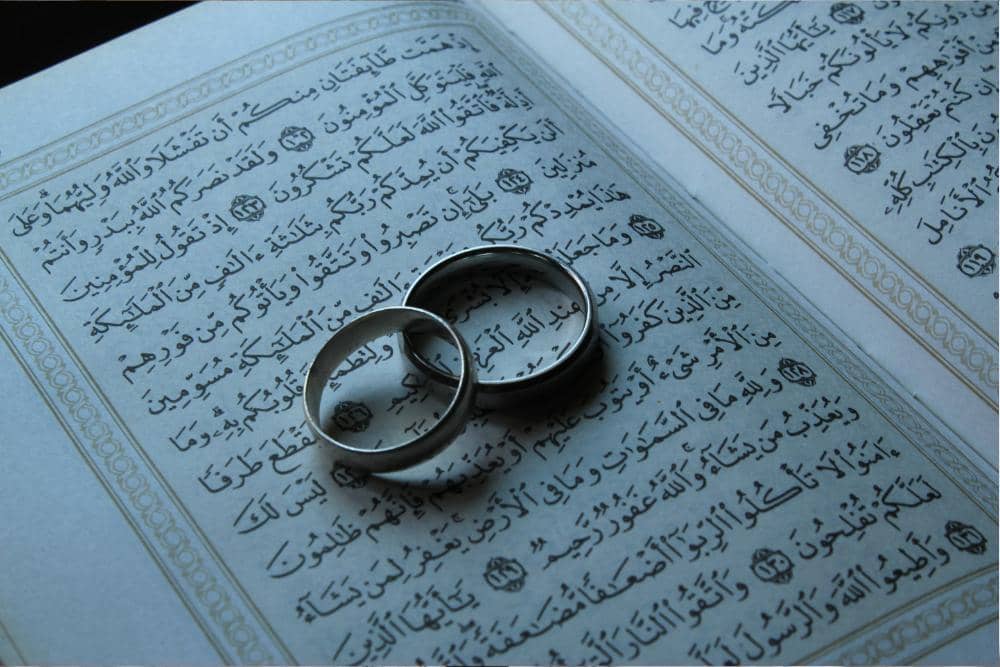 فِيهَا
١١٧
يَٰٓأَيُّهَا ٱلَّذِينَ
مِّن دُونِكُمْ لَا يَأْلُونَكُمْ خَبَالًا
مِنْ أَفْوَٰهِهِمْ وَمَا تُخْفِى
إِن كُنتُمْ تَعْقِلُونَ ١١٨
بِٱلْكِتَٰبِ كُلِّهِۦ
ٱلْأَنَامِلَ
١١٩
إِذْ هَمَّت طَّآئِفَتَانِ مِنكُمْ أَن تَفْشَلَا وَٱللَّهُ وَلِيُّهُمَا وَعَلَى
ٱللَّهِ فَلْيَتَوَكَّلِ ٱلْمُؤْمِنُونَ ١٢٢ وَلَقَدْ نَصَرَكُمُ ٱللَّهُ بِبَدْرٍ وَأَنتُمْ
أَذِلَّةٌ فَٱتَّقُوا۟ ٱللَّهَ لَعَلَّكُمْ تَشْكُرُونَ ١٢٣ إِذْ تَقُولُ لِلْمُؤْمِنِينَ
أَلَن يَكْفِيَكُمْ أَن يُمِدَّكُمْ رَبُّكُم بِثَلَٰثَةِ ءَالَٰفٍ مِّنَ ٱلْمَلَٰٓئِكَةِ
مُنزَلِينَ ١٢٤ بَلَىٰٓ إِن تَصْبِرُوا۟ وَتَتَّقُوا۟ وَيَأْتُوكُم مِّن فَوْرِهِمْ
هَٰذَا يُمْدِدْكُمْ رَبُّكُم ءَالَٰفٍ مِّنَ ٱلْمَلَٰٓئِكَةِ مُسَوِّمِينَ
١٢٥ وَمَا جَعَلَهُ إِلَّا بُشْرَىٰ وَلِتَطْمَئِنَّ قُلُوبُكُم بِهِۦ وَمَا
ٱلنَّصْرُ إِلَّا مِنْ عِندِ ٱللَّهِ ٱلْعَزِيزِ ٱلْحَكِيمِ ١٢٦ لِيَقْطَعَ طَرَفًا
مِّنَ ٱلَّذِينَ كَفَرُوٓا۟ ١٢٧ لَيْسَ لَكَ
مِنَ ٱلْأَمْرِ شَىْءٌ أَوْ يَتُوبَ عَلَيْهِمْ أَوْ يُعَذِّبَهُمْ فَإِنَّهُمْ ظَٰلِمُونَ
١٢٨ وَلِلَّهِ مَا فِى ٱلسَّمَٰوَٰتِ وَمَا فِى ٱلْأَرْضِ يَغْفِرُ لِمَن يَشَآءُ
وَيُعَذِّبُ مَن يَشَآءُ وَٱللَّهُ غَفُورٌ رَّحِيمٌ ١٢٩ يَٰٓأَيُّهَا ٱلَّذِينَ
ءَامَنُوا۟ لَا تَأْكُلُوا۟ ٱلرِّبَوٰٓا۟ أَضْعَٰفًا مُّضَٰعَفَةً
لَعَلَّكُمْ تُفْلِحُونَ ١٣٠ وَٱتَّقُوا۟ ٱلنَّارَ
١٣١ وَأَطِيعُوا۟ ٱللَّهَ وَٱلرَّسُولَ